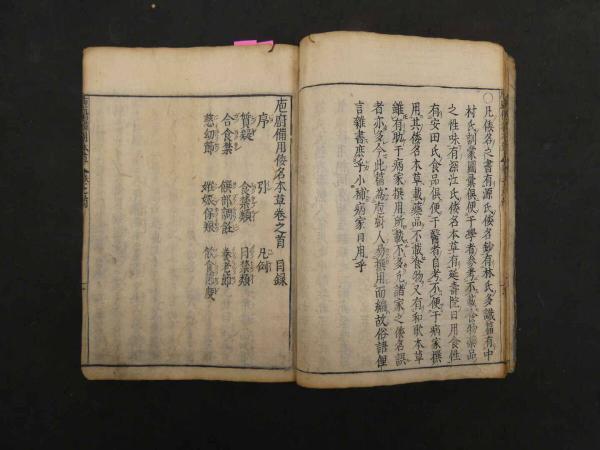 ○凡倭名之書有源氏倭名鈔有林氏多識篇有中
村氏訓蒙圖彙俱便于學者參考不載食物藥品
之性味有深江氏倭名本草有延壽院日用食性
有安田氏食品俱便于醫者自考不便于病家撰
用其倭名本草載藥品不載食物又有和歌本草
雖有助于病家撰用所載不多凡諸家之倭名誤
者亦多今此篇為庖廚人易撰用而編故俗語俚
言雜書庶乎小補病家日用乎
庖廚備用倭名本草卷之首 目録
序 引 凡例
質疑 食禁類 月禁類
合食禁 饌部調飪 養老節
慈幼節 飲食節度